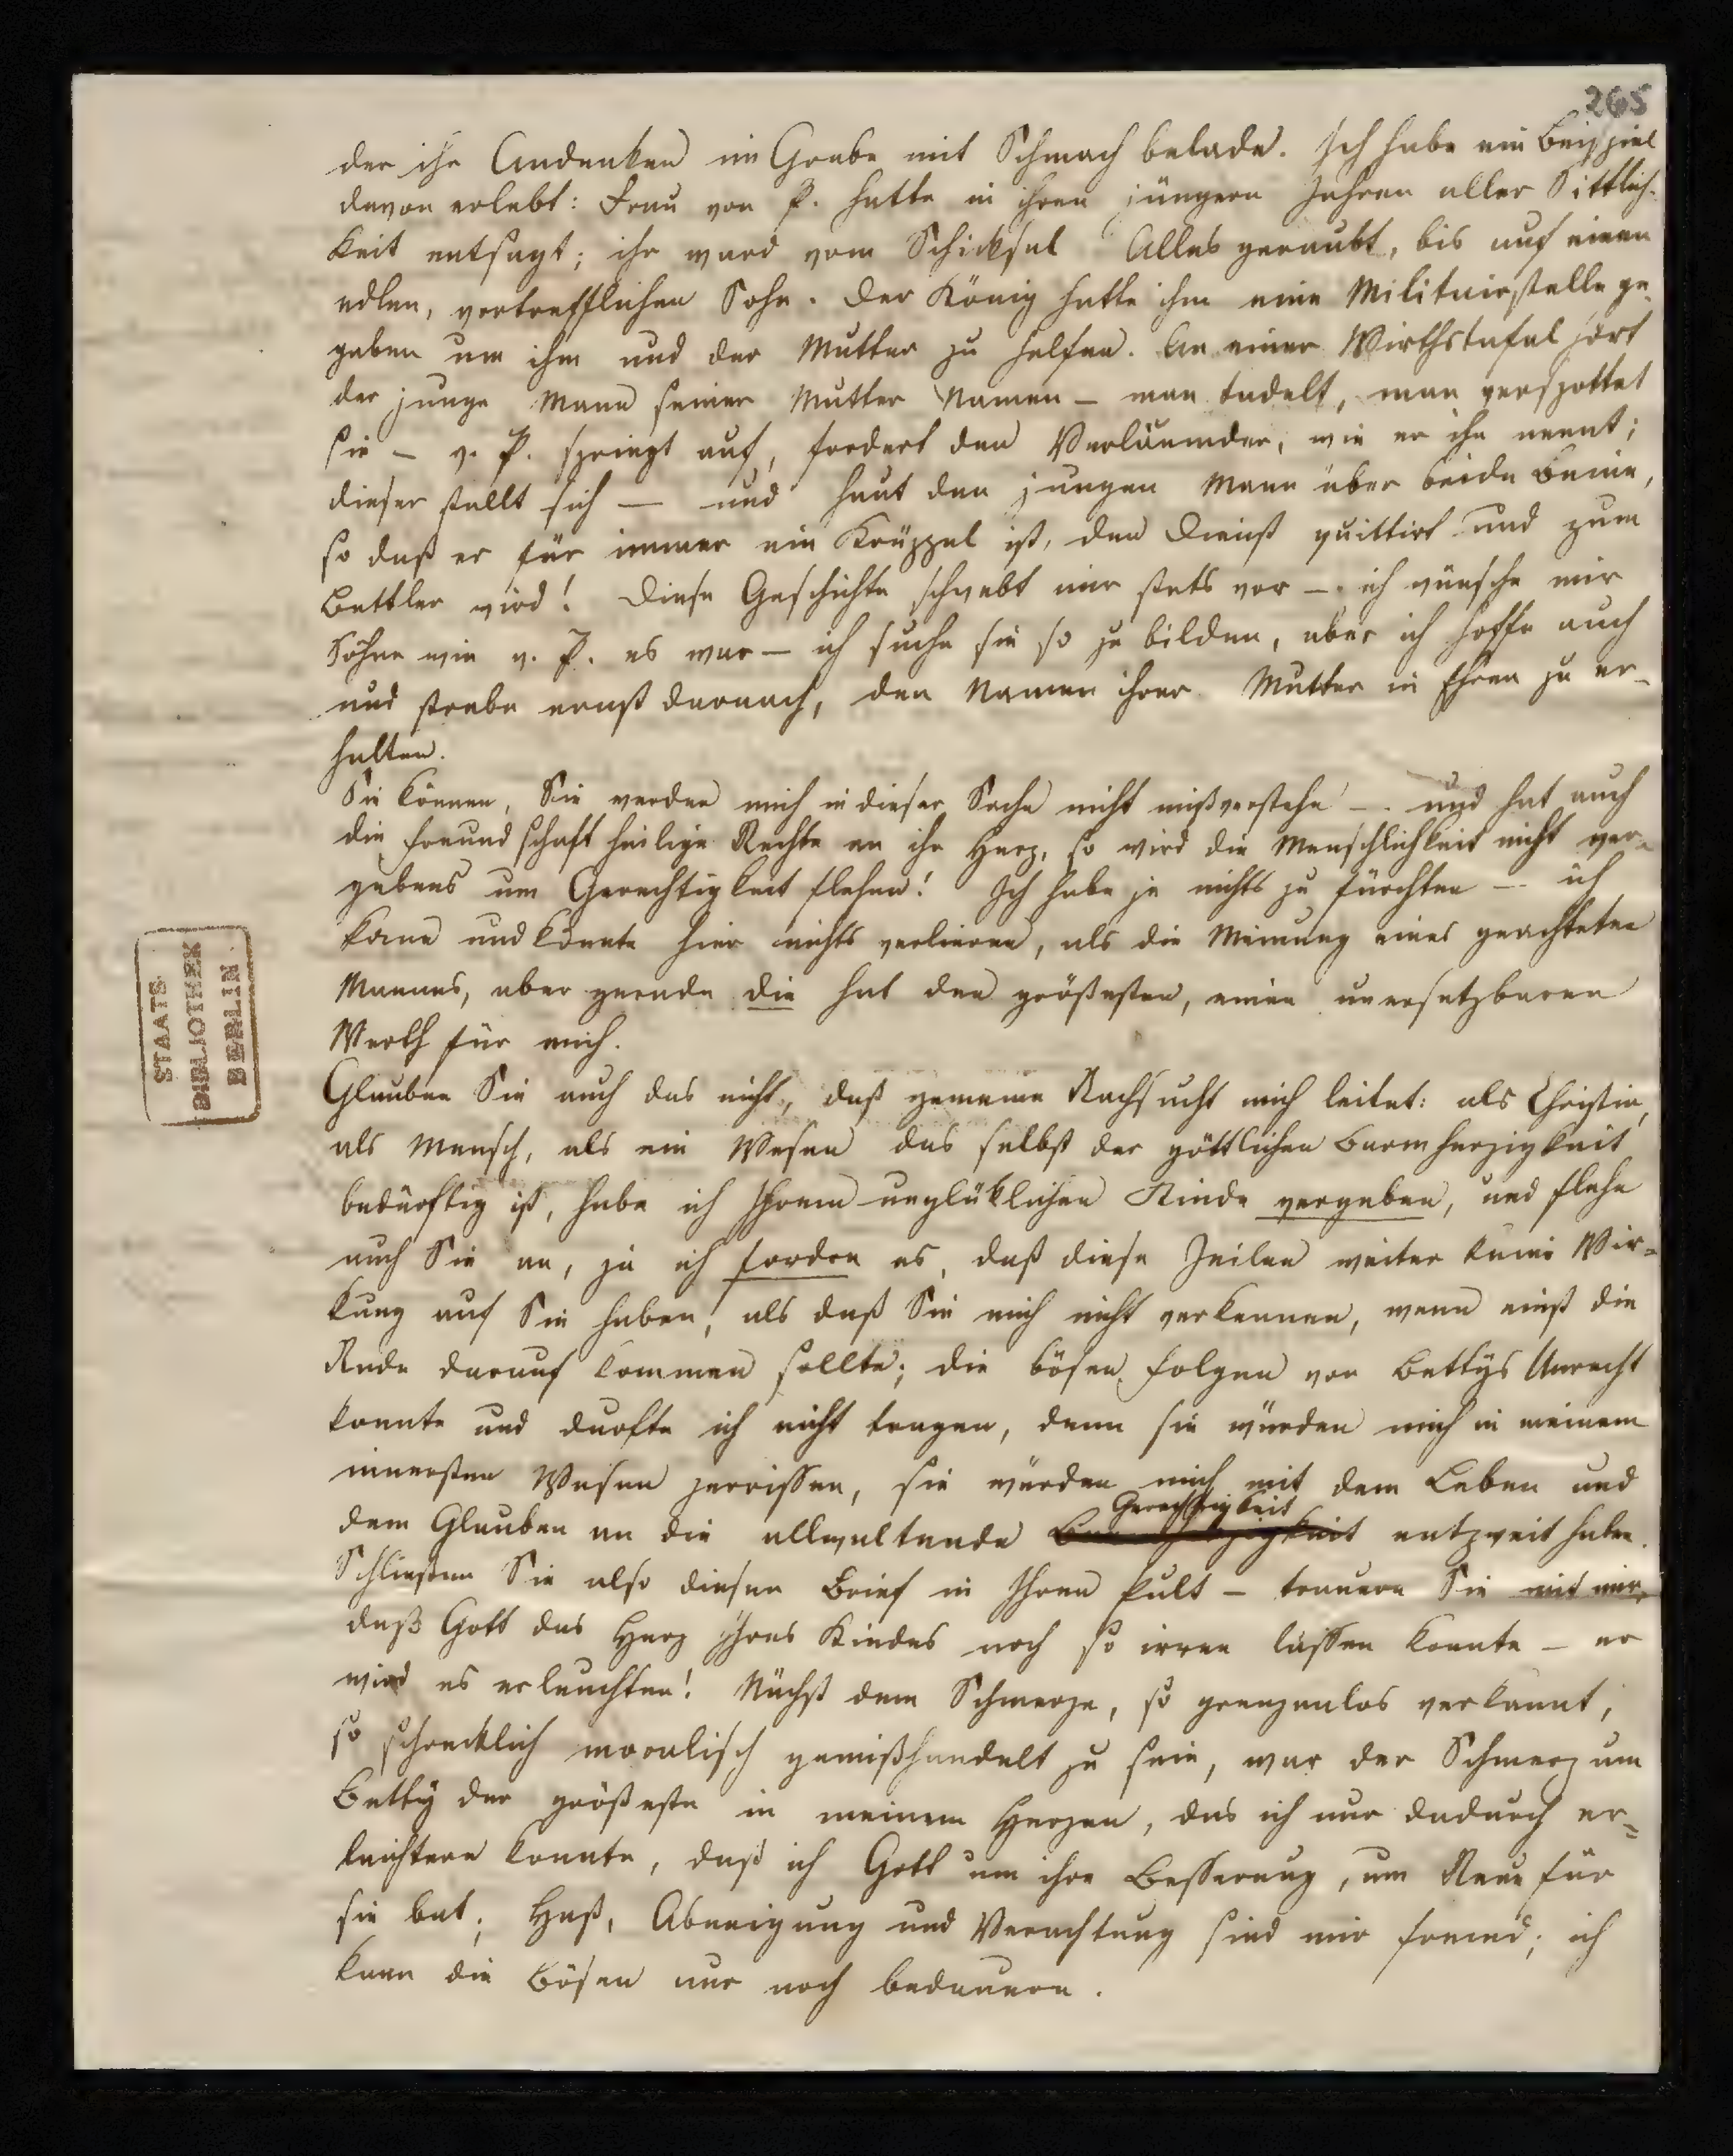 265
der ihr Andenken im Grabe mit Schmach belade. Ich habe ein Beispiel
davon erlebt: Frau von P. hatte in ihren jüngern Jahren aller Sittlich-
keit entsagt; ihr ward vom Schicksal Alles geraubt, bis auf einen
edlen, vortrefflichen Sohn. Der König hatte ihm eine Militairstelle ge-
geben um ihm und der Mutter zu helfen. An einer Wirthstafel hört
der junge Mann seiner Mutter Namen – man tadelt, man verspottet
sie – v. P. springt auf, fordert den Verläumder, wie er ihn nennt;
dieser stellt sich — und haut den jungen Mann über beide Beine,
so daß er für immer ein Krüppel ist, den Dienst quittirt und zum
Bettler wird! Diese Geschichte schwebt mir stets vor – ich wünsche mir
Söhne wie v. P. es war – ich suche sie so zu bilden, aber ich hoffe auch
und strebe ernst darnach, den Namen ihrer Mutter in Ehren zu er-
halten.
Sie können, Sie werden mich in dieser Sache nicht mißverstehn – und hat auch
die Freundschaft heilige Rechte an ihr Herz, so wird die Menschlichkeit nicht ver-
gebens um Gerechtigkeit flehen! Ich habe ja nichts zu fürchten – ich
kann und konnte hier nichts verlieren, als die Meinung eines geachteten
Mannes, aber gerade die hat den größesten, einen unersetzbaren
Werth für mich.
STAATS
BIBLIOTHEK
BERLIN
Glauben Sie auch das nicht, daß gemeine Rachsucht mich leitet: als Christin,
als Mensch, als ein Wesen das selbst der göttlichen Barmherzigkeit
bedürftig ist, habe ich Ihrem unglüklichen Kinde vergeben, und flehe
auch Sie an, ja ich fordre es, daß diese Zeilen weiter keine Wir-
kung auf Sie haben, als daß Sie mich nicht verkennen, wenn einst die
Rede darauf kommen sollte; die bösen Folgen von Bettys Unrecht
konnte und durfte ich nicht tragen, denn sie würden mich in meinem
innersten Wesen zerrissen, sie würden mich mit dem Leben und
dem Glauben an die allwaltende Barmherzigkeit Gerechtigkeit entzweit haben.
Schließen Sie also diesen Brief in Ihren Pult – trauern Sie mit mir,
daß Gott das Herz Ihres Kindes noch so irren lassen konnte – er
wird es erleuchten! Nächst dem Schmerze, so grenzenlos verkannt,
so schrecklich moralisch gemißhandelt zu sein, war der Schmerz um
Betty der größeste in meinem Herzen, das ich nur dadurch er-
leichtern konnte, daß ich Gott um ihre Besserung, um Reue für
sie bat; Haß, Abneigung und Verachtung sind mir fremd; ich
kann die Bösen nur noch bedauern.